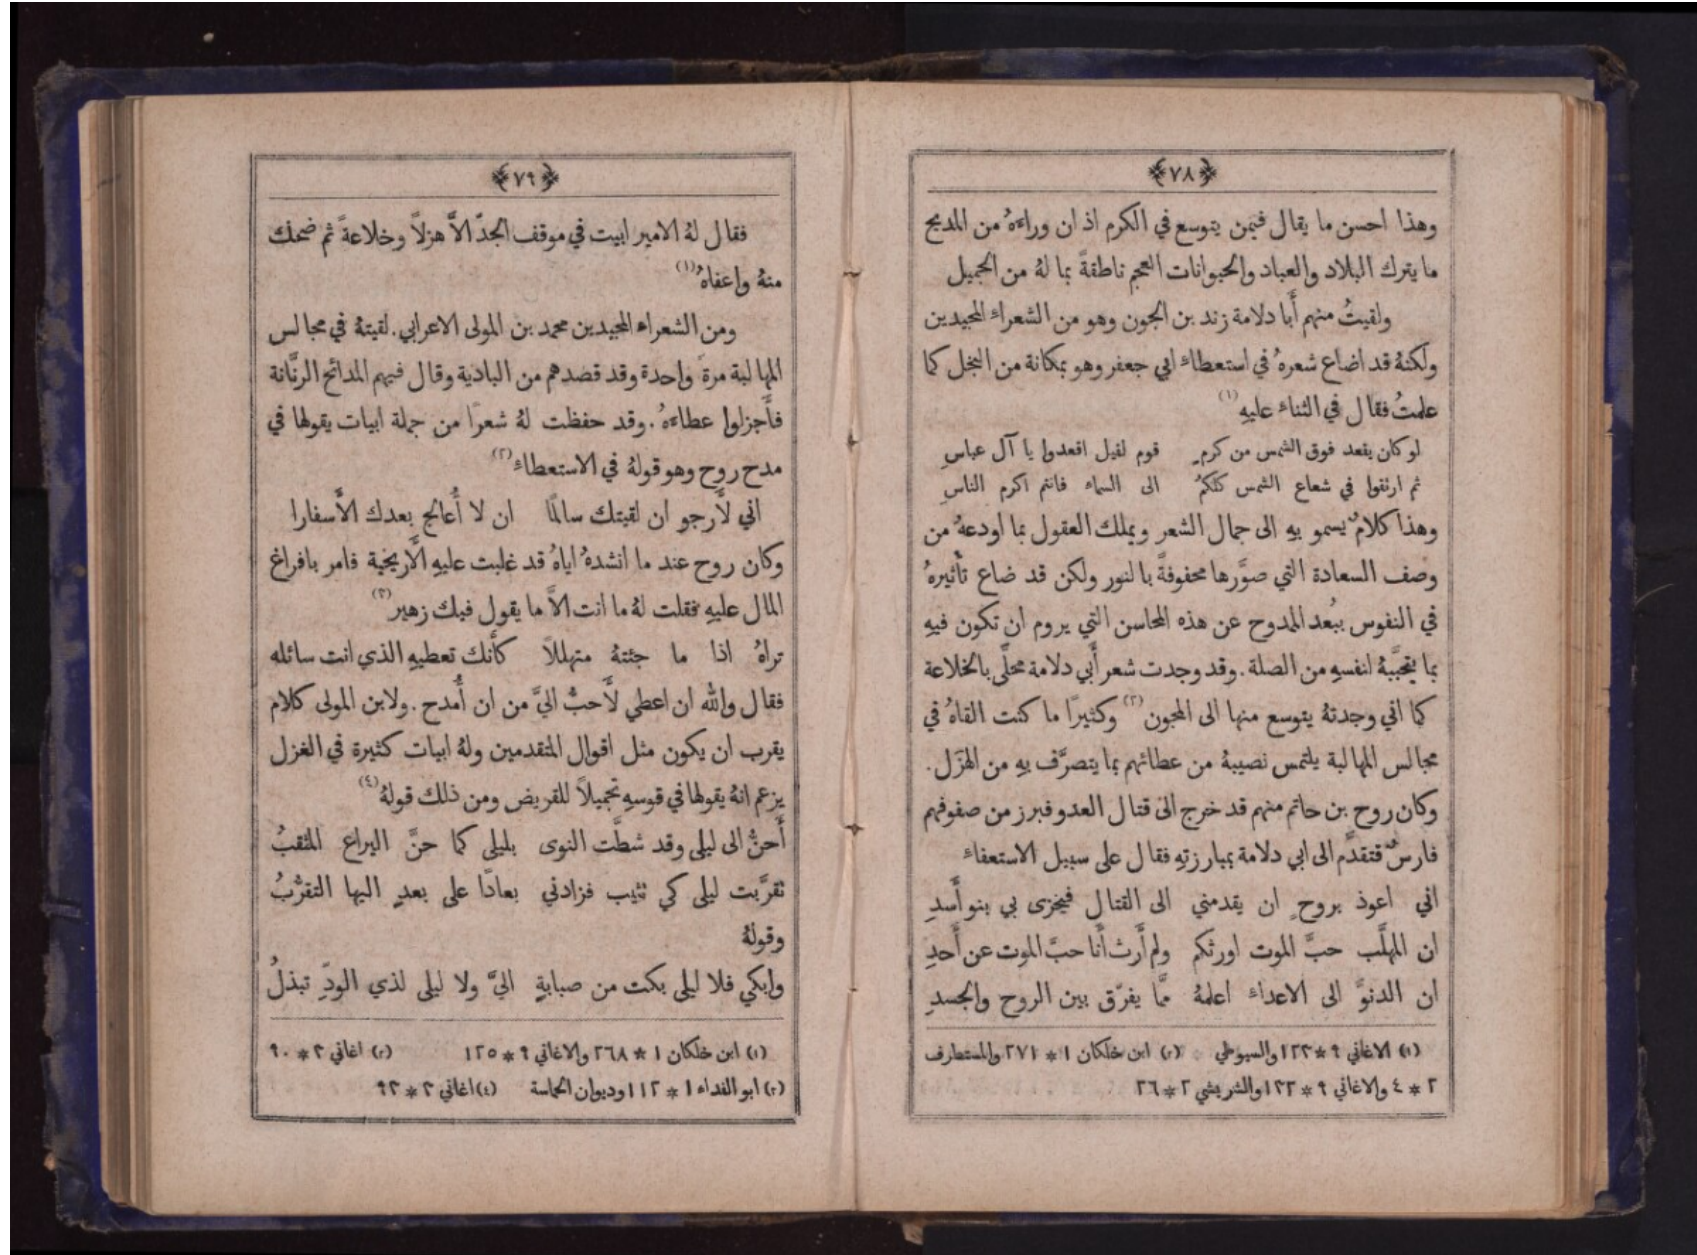 ﴿٧٨﴾
وهذا احسن ما يقال فيمن يتوسع في الكرم اذ ان وراءهُ من المديح
ما يترك البلاد والعباد والحيوانات العجم ناطقةً بما لهُ من الجميل
ولقيتُ منهم أَبا دلامة زند بن الجون وهو من الشعراء المجيدين
ولكنهُ قد اضاع شعرهُ في استعطاء ابي جعفر وهو بمكانة من البخل كما
علمتُ فقال في الثناء عليهِ (١)
لو كان يقعد فوق الشمس من كرمٍ قوم لقيل اقعدوا يا آل عباسِ
ثم ارتقوا في شعاع الشمس كلكمُ الى السماء فانتم اكرم الناسِ
وهذا كلامٌ يسمو بهِ الى جمال الشعر ويملك العقول بما اودعهُ من
وصف السعادة التي صوَّرها محفوفةً بالنور ولكن قد ضاع تأْثيرهُ
في النفوس ببُعد الممدوح عن هذه المحاسن التي يروم ان تكون فيهِ
بما يتحبَّبهُ لنفسهِ من الصلة . وقد وجدت شعر أَبي دلامة محلَّى بالخلاعة
كما اني وجدتهُ يتوسع منها الى المجون (٢) وكثيرًا ما كنت القاهُ في
مجالس المهالبة يلتمس نصيبهُ من عطائهم بما يتصرَّف بهِ من الهزَل .
وكان روح بن حاتم منهم قد خرج الى قتال العدو فبرز من صفوفهم
فارسٌ فتقدَّم الى ابي دلامة بمبارزتهِ فقال على سبيل الاستعفاء
اني اعوذ بروحٍ ان يقدمني الى القتال فيخزى بي بنو أَسدِ
ان المهلَّب حبَّ الموت اورثكم ولم أَرث أَنا حبَّ الموت عن أَحدِ
ان الدنوَّ الى الاعداء اعلمهُ ممَّا يفرّق بين الروح والجسدِ
(١) الاغاني ٩ * ١٢٣ والسيوطي (٢) ابن خلكان ١ * ٢٧١ والمستطرف
٢ * ٤ والاغاني ٩ * ١٢٢ والشريشي ٢ * ٢٦
﴿٧٩﴾
فقال لهُ الامير ابيت في موقف الجدّ الاَّ هزلاً وخلاعةً ثم ضحك
منهُ واعفاهُ (١)
ومن الشعراء المجيدين محمد بن المولى الاعرابي . لقيتهُ في مجالس
المهالبة مرةً واحدة وقد قصدهم من البادية وقال فيهم المدائح الرنَّانة
فأَجزلوا عطاءهُ . وقد حفظت لهُ شعرًا من جملة ابيات يقولها في
مدح روح وهو قولهُ في الاستعطاء (٢)
اني لأَرجو ان لقيتك سالمًا ان لا أُعالج بعدك الأَسفارا
وكان روح عند ما انشدهُ اياهُ قد غلبت عليهِ الأَريحية فامر بافراغ
المال عليهِ فقلت لهُ ما انت الاَّ ما يقول فيك زهير (٣)
تراهُ اذا ما جئتهُ متهللاً كأَنك تعطيهِ الذي انت سائله
فقال والله ان اعطي لأَحبُّ اليَّ من ان أُمدح . ولابن المولى كلام
يقرب ان يكون مثل اقوال المتقدمين ولهُ ابيات كثيرة في الغزل
يزعم انهُ يقولها في قوسهِ تجميلاً للقريض ومن ذلك قولهُ (٤)
أَحنُّ الى ليلى وقد شطَّت النوى بليلى كما حنَّ اليراع المثقبُ
تقرَّبت ليلى كي تثيب فزادني بعادًا على بعدٍ اليها التقرُّبُ
وقولهُ
وابكي فلا ليلى بكت من صبابةٍ اليَّ ولا ليلى لذي الودِّ تبذلُ
(١) ابن خلكان ١ * ٢٦٨ والاغاني ٩ * ١٢٥ (٢) اغاني ٣ * ٩٠
(٣) ابو الفداء ١ * ١١٢ وديوان الحماسة (٤) اغاني ٣ * ٩٣